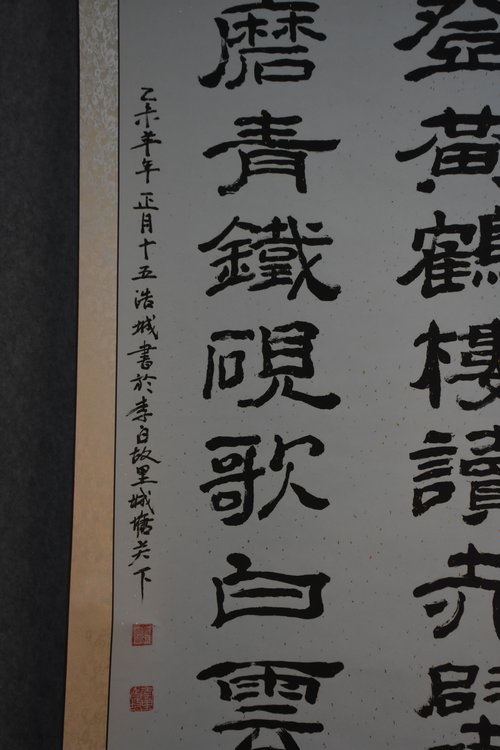 登黄鶴樓讀赤壁
磨青鐵硯歌白雲
乙未羊年正月十五浩城書於李白故里城塘关下